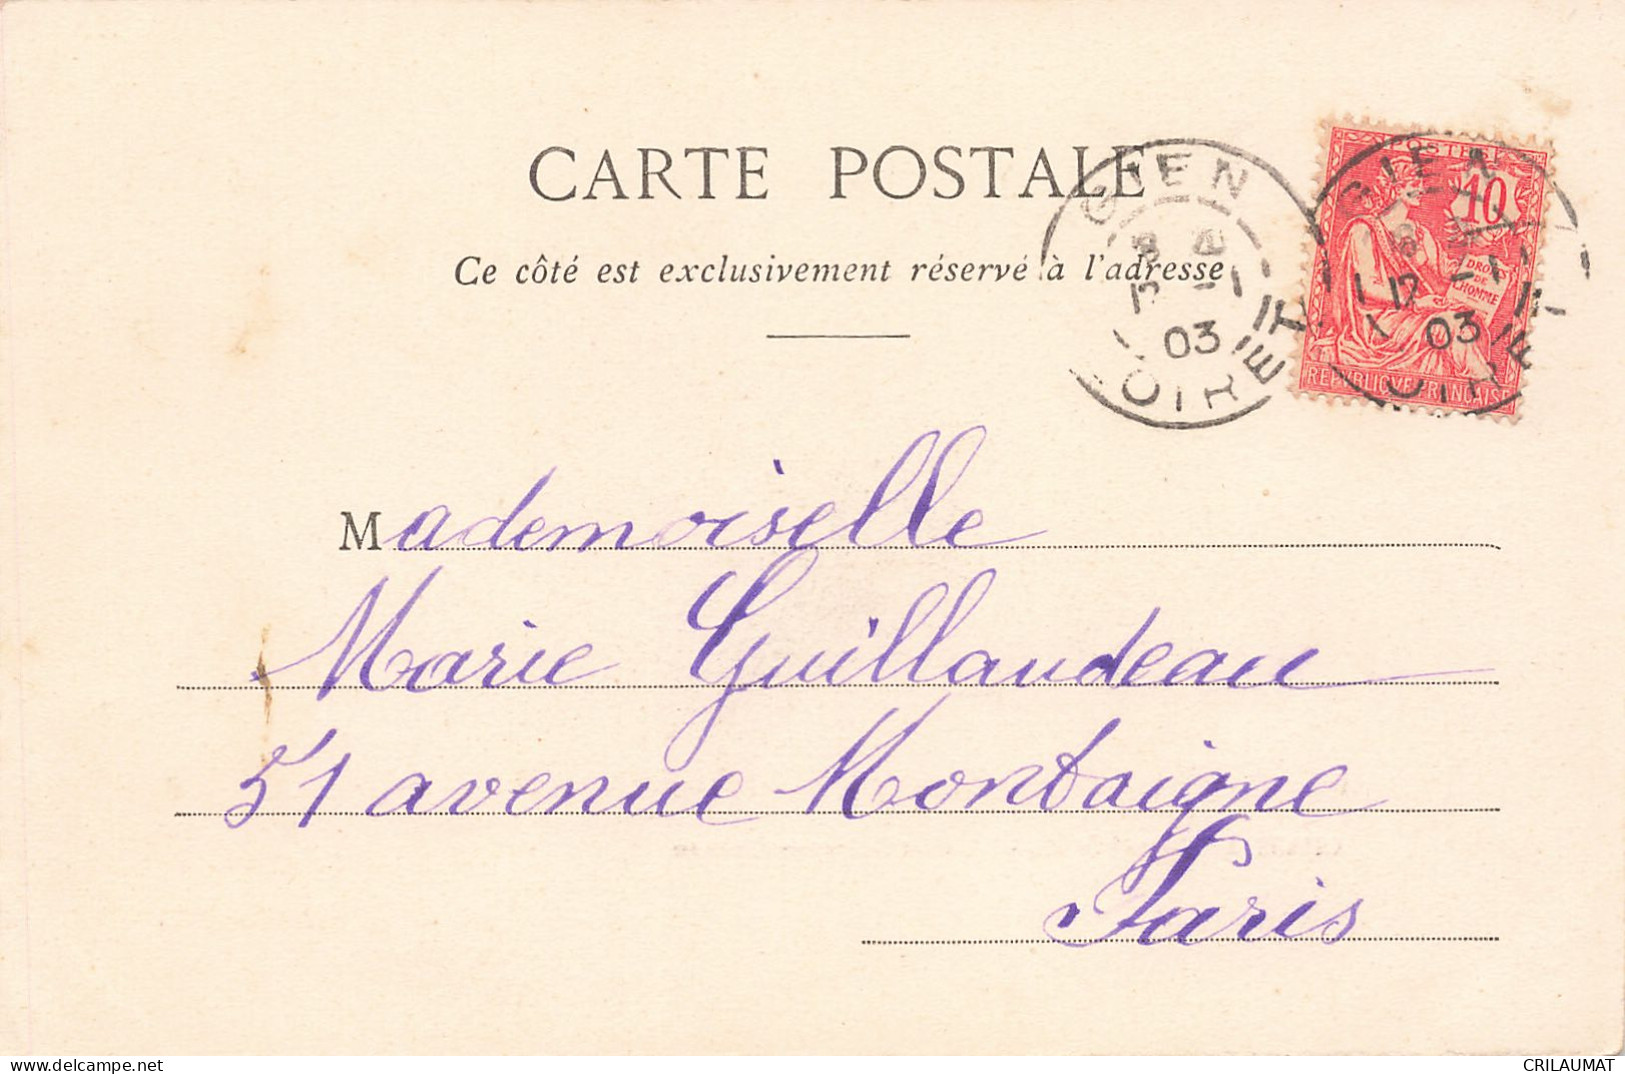 CARTE POSTALE
Ce côté est exclusivement réservé à l'adresse
GIEN
03
LOIRET
POSTES
10
DROITS
DE
L'HOMME
REPUBLIQUE FRANÇAISE
GIEN
03
LOIRET
Mademoiselle
Marie Guillaudeau
51 avenue Montaigne
Paris
www.delcampe.net
CRILAUMAT